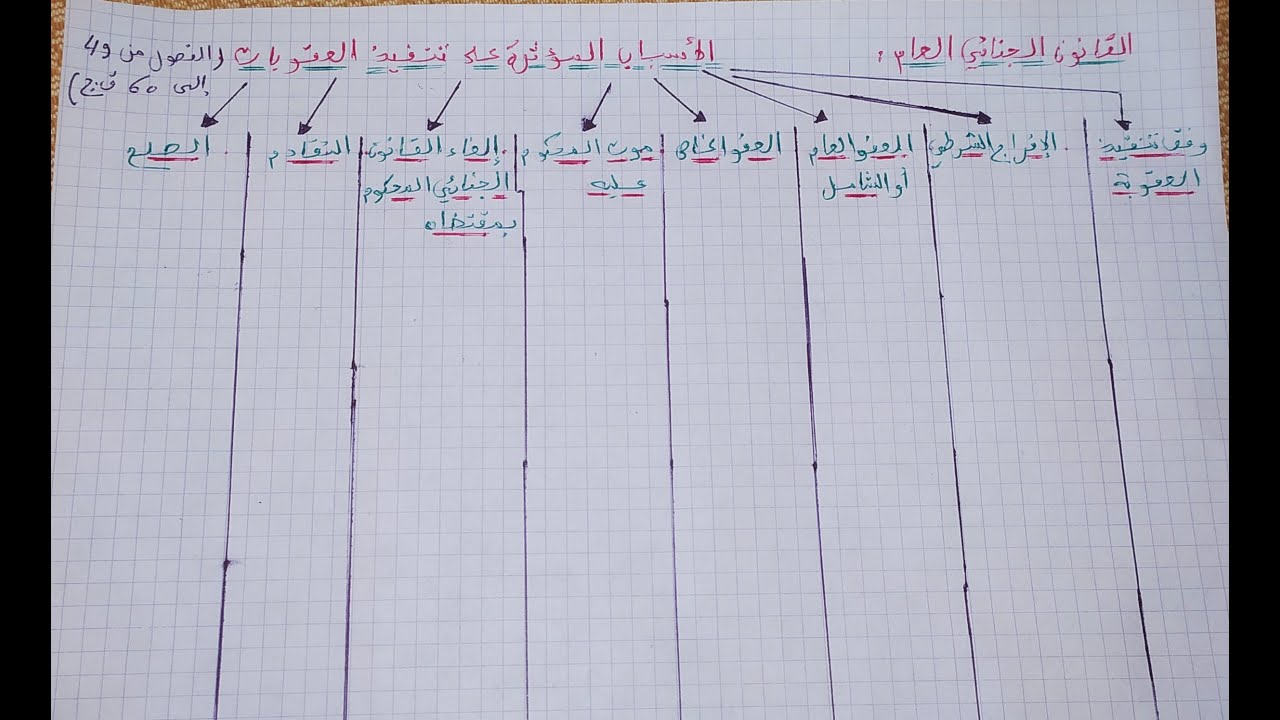 القانون الجنائي العام : الأسباب المؤثرة على تنفيذ العقوبات (الفصول من 49
إلى 60 ق ج)
وقف تنفيذ
العقوبة
الإفراج الشرطي
العفو العام
أو الشامل
العفو الخاص
موت المحكوم
عليه
إلغاء القانون
الجنائي المحكوم
بمقتضاه
التقادم
الصلح